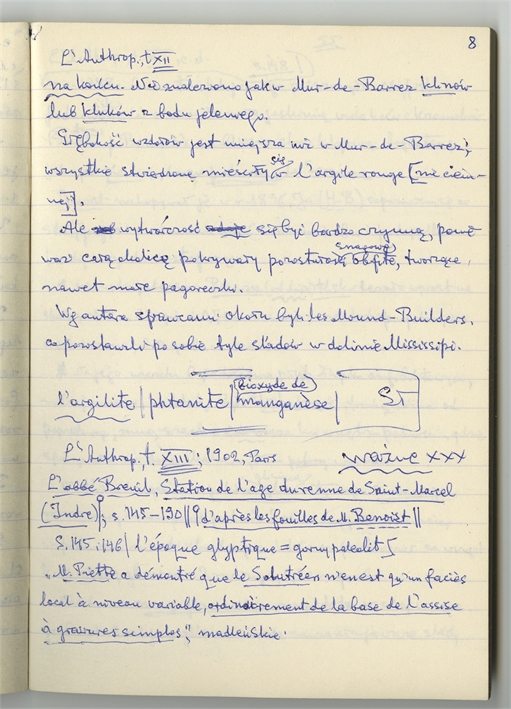 8
L'Anthrop., t. XII
na końcu. Nie znaleziono jak w Mur-de-Barrez klinów
lub kluków z bodu jeleniego.
Głębokość wzdołów jest mniejsza niż w Mur-de-Barrez;
wszystkie stwierdzone mieściły się w l'argile rouge [nie ciem-
nej].
Ale wytwórczość się być bardzo czynną, poni-
waż całą okolicę pokrywały pozostałości smagową obfite, tworząc
nawet małe pagoreczki.
Wg autora sprawcami okoru byli les Mound-Builders,
co pozostawili po sobie tyle śladów w dolinie Mississipi.
l'argilite | phtanite | bioxyde de manganèse | ST
L'Anthrop., t. XIII, 1902, Paris ważne XXX
L'abbé Breuil, Station de l'age du renne de Saint-Marcel
(Indre), s. 145-190 || d'après les fouilles de M. Benoist ||
S. 145, 146 | l'époque glyptique = gorny paleolit [
„M. Piette a démontré que le Solutréen n'en est qu'un faciès
local à niveau variable, ordinairement de la base de l'assise
à gravures simples", madleńskie.